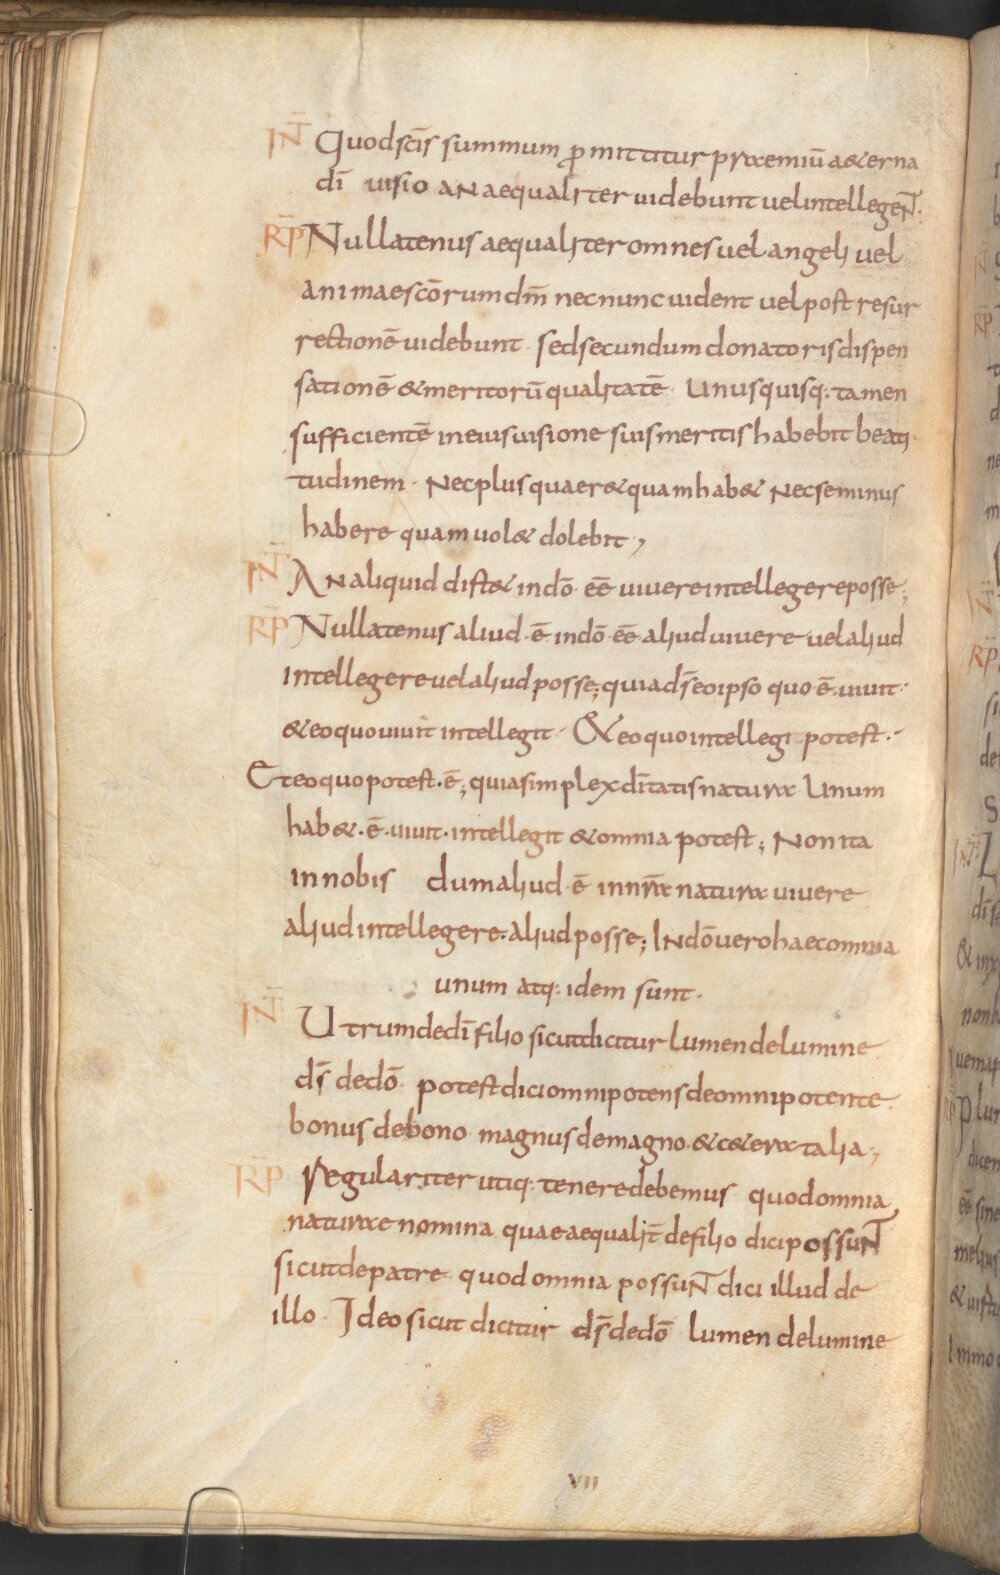 INT̄ Quod sc̄is summum p̄mittitur praemiū a&erna
dī uisio an aequaliter uidebunt uel intellegeN̄T.
RP̄ Nullatenus aequaliter omnes uel angeli uel
animae sc̄orum dm̄ nec nunc uident uel post resur
rectionē uidebunt sed secundum donatoris dispen
sationē & meritorū qualitatē. Unusquisq: tamen
sufficientē in eius uisione suis meritis habebit beati
tudinem. Nec plus quaer& quam hab& Nec se minus
habere quam uol& dolebit;
INT̄ An aliquid dist& in dō. eē uiuere intellegere posse;
RP̄ Nullatenus aliud. ē. in dō. eē aliud uiuere uel aliud
intellegere uel aliud posse; quia ds̄ eo ipso quo ē. uiuit.
& eo quo uiuit intellegit. & eo quo intellegi potest.
Et eo quo potest. ē; quia simplex dītatis natura Unum
hab&. ē. uiuit. intellegit & omnia potest; Non ita
in nobis dum aliud. ē in nr̄a natura uiuere
aliud intellegere. aliud posse; IN dō uero haec omnia
unum atq: idem sunt.
INT̄ Utrum de dī filio sicut dicitur lumen de lumine
ds̄ de dō potest dici omnipotens de omnipotente.
bonus de bono magnus de magno & c&era talia;
RP̄ Regulariter utiq: tenere debemus quod omnia
naturae nomina quae aequalit̄ de filio dici possuNT
sicut de patre quod omnia possuNT dici illud de
illo. Ideo sicut dicitur ds̄ de dō lumen de lumine
VII